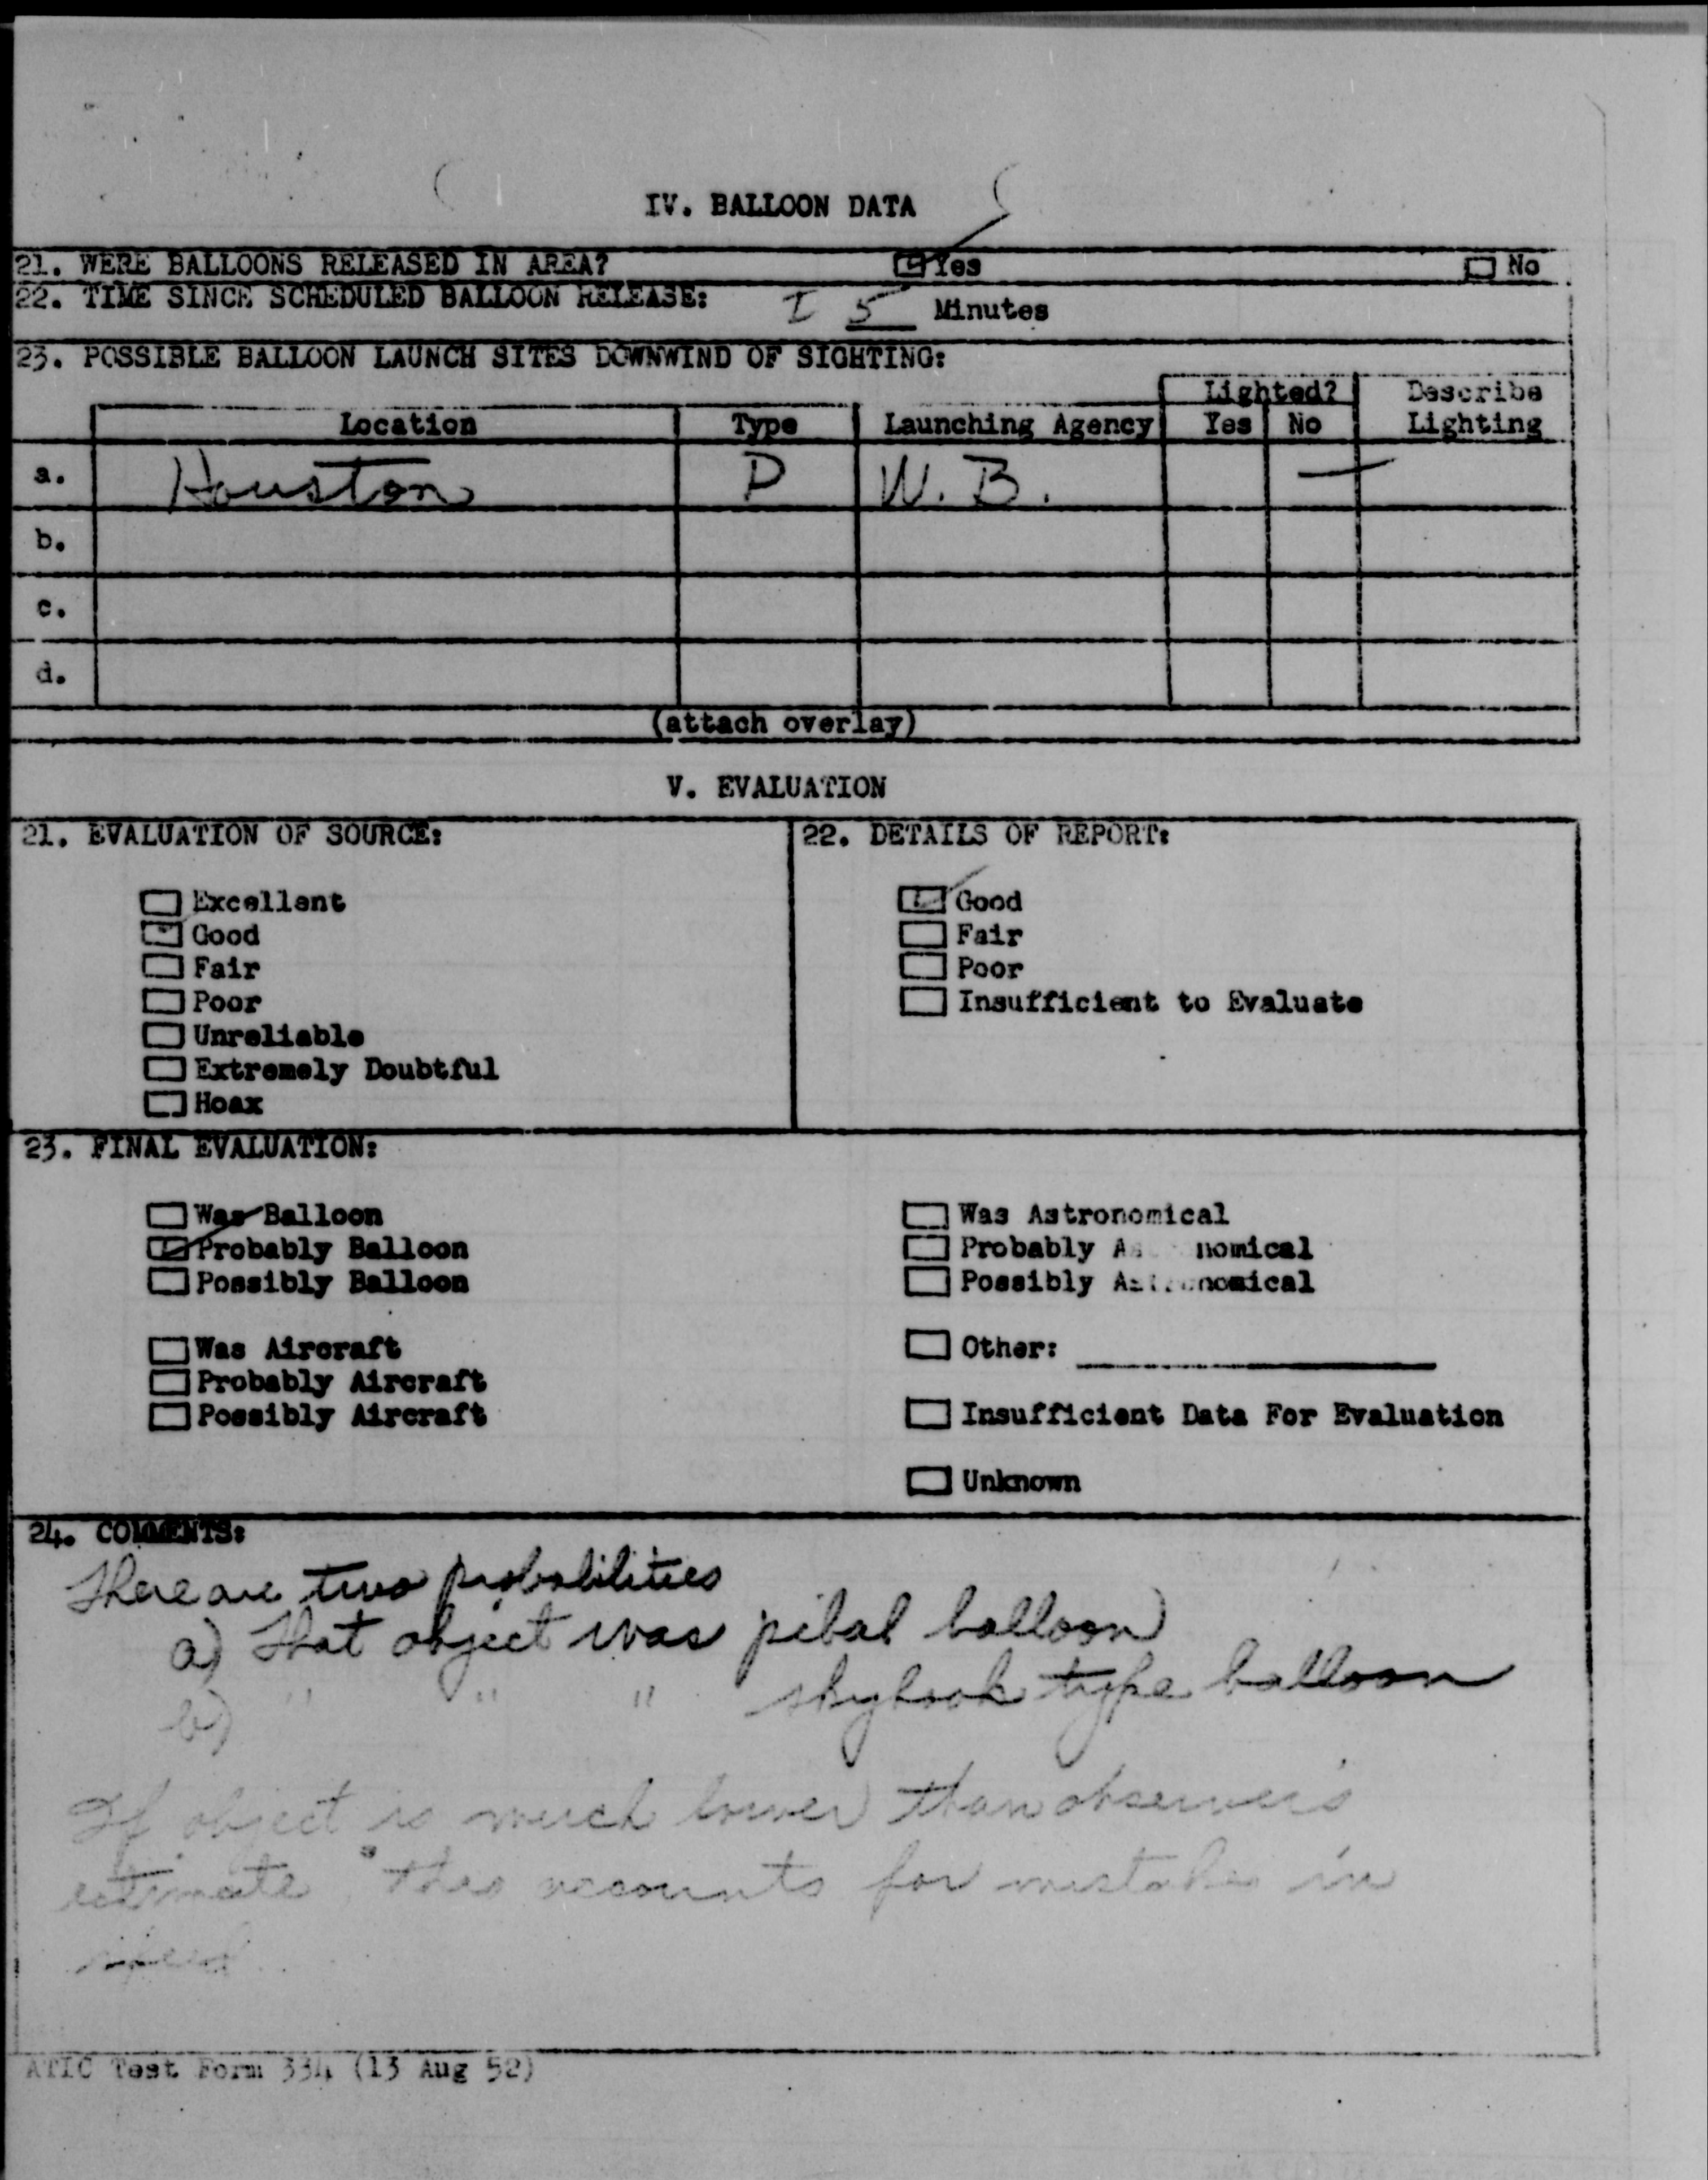 IV. BALLOON DATA
21. WERE BALLOONS RELEASED IN AREA? Yes No
22. TIME SINCE SCHEDULED BALLOON RELEASE: 5 Minutes
23. POSSIBLE BALLOON LAUNCH SITES DOWNWIND OF SIGHTING:
Lighted? Describe
Location Type Launching Agency Yes No Lighting
a. Houston P W. B. —
b.
c.
d.
(attach overlay)
V. EVALUATION
21. EVALUATION OF SOURCE: 22. DETAILS OF REPORT:
Excellent Good
Good Fair
Fair Poor
Poor Insufficient to Evaluate
Unreliable
Extremely Doubtful
Hoax
23. FINAL EVALUATION:
Was Balloon Was Astronomical
Probably Balloon Probably As nomical
Possibly Balloon Possibly Astronomical
Was Aircraft Other:
Probably Aircraft
Possibly Aircraft Insufficient Data For Evaluation
Unknown
24. COMMENTS:
There are two probabilities
a) that object was pibal balloon
b) " " " skyhook type balloon
If object is much lower than observer's
estimate this accounts for mistake in
speed
ATIC Test Form 334 (13 Aug 52)